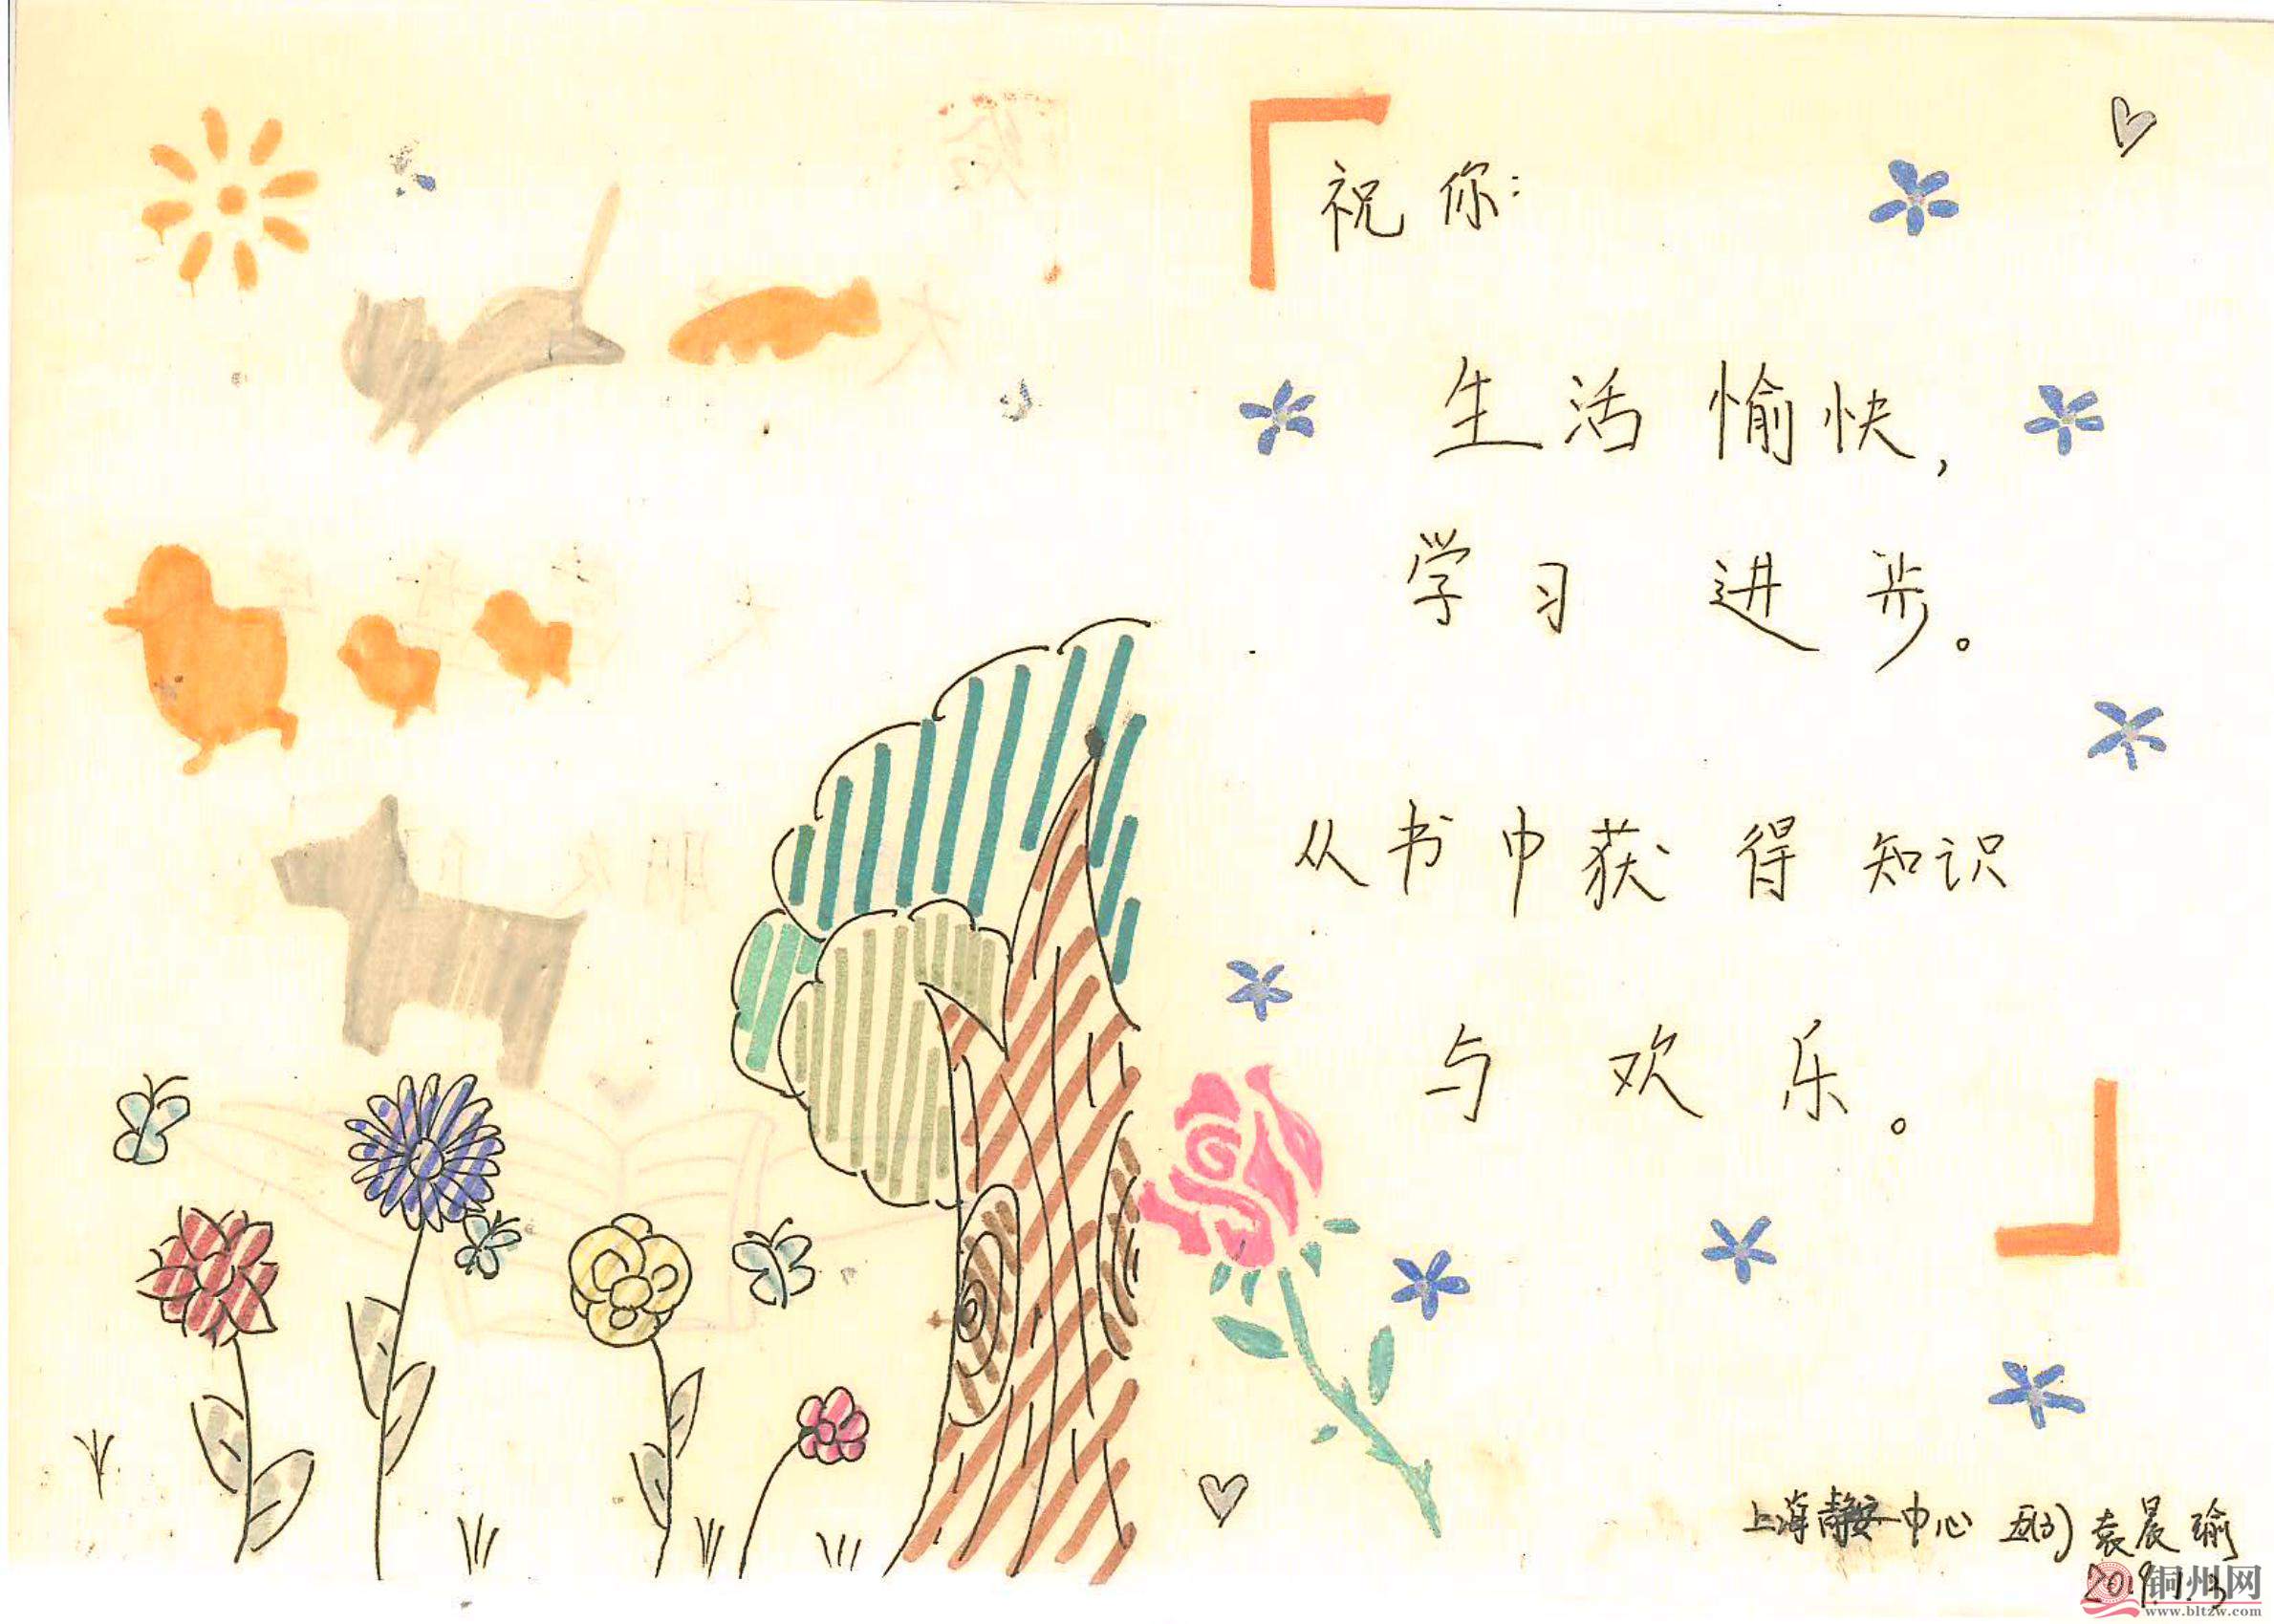 祝你：
生活愉快，
学习进步。
从书中获得知识
与欢乐。
上海静安中心 五(3) 袁晨瑜
2019.1.3
铜州网
www.bltzw.com